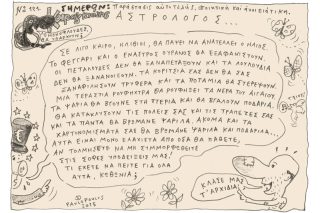 Νο 222.
ΣΗΜΕΡΟΝ: Παράστασις
ΑΣΤΡΟΛΟΓΟΣ...
ΣΕ ΛΙΓΟ ΚΑΙΡΟ, ΗΛΙΘΙΟΙ, ΘΑ ΠΑΨΕΙ ΝΑ ΑΝΑΤΕΛΕΙ Ο ΗΛΙΟΣ.
ΤΟ ΦΕΓΓΑΡΙ ΚΑΙ Ο ΕΝΑΣΤΡΟΣ ΟΥΡΑΝΟΣ ΘΑ ΕΞΑΦΑΝΙΣΤΟΥΝ.
ΟΙ ΠΕΤΑΛΟΥΔΕΣ ΔΕΝ ΘΑ ΞΑΝΑΠΕΤΑΞΟΥΝ ΚΑΙ ΤΑ ΛΟΥΛΟΥΔΙΑ
ΔΕΝ ΘΑ ΞΑΝΑΝΘΙΣΟΥΝ. ΤΑ ΚΟΡΙΤΣΙΑ ΣΑΣ ΔΕΝ ΘΑ ΣΑΣ
ΞΑΝΑΦΙΛΗΣΟΥΝ ΤΡΥΦΕΡΑ ΚΑΙ ΤΑ ΠΟΤΑΜΙΑ ΘΑ ΣΤΕΡΕΨΟΥΝ.
ΜΙΑ ΤΕΡΑΣΤΙΑ ΡΟΥΦΗΧΤΡΑ ΘΑ ΡΟΥΦΗΞΕΙ ΤΑ ΝΕΡΑ ΤΗΣ
ΤΑ ΨΑΡΙΑ ΘΑ ΒΓΟΥΝΕ ΣΤΗ ΣΤΕΡΙΑ ΚΑΙ ΘΑ ΒΓΑΛΟΥΝ ΠΟΔΑΡΙΑ.
ΘΑ ΚΑΤΑΚΛΥΣΟΥΝ ΤΙΣ ΠΟΛΕΙΣ ΣΑΣ ΚΑΙ ΤΙΣ ΤΡΑΠΕΖΕΣ ΣΑΣ
ΚΑΙ ΤΑ ΠΑΝΤΑ ΘΑ ΒΡΩΜΑΝΕ ΨΑΡΙΛΑ, ΑΚΟΜΑ ΚΑΙ ΤΑ
ΧΑΡΤΟΝΟΜΙΣΜΑΤΑ ΣΑΣ ΘΑ ΒΡΩΜΑΝΕ ΨΑΡΙΛΑ ΚΑΙ ΠΟΔΑΡΙΛΑ...
ΑΥΤΑ ΕΙΝΑΙ ΜΟΝΟ ΕΛΑΧΙΣΤΑ ΑΠΟ ΟΣΑ ΘΑ ΠΑΘΕΤΕ,
ΑΝ ΤΟΛΜΗΣΕΤΕ ΝΑ ΜΗ ΣΥΜΜΟΡΦΩΘΕΙΤΕ
ΣΤΙΣ ΣΟΦΕΣ ΥΠΟΔΕΙΞΕΙΣ ΜΑΣ!
ΤΙ ΕΧΕΤΕ ΝΑ ΠΕΙΤΕ ΓΙΑ ΟΛΑ
ΑΥΤΑ, ΚΕΘΕΝΙΑ;
ΚΛΑΣΕ ΜΑΣ
Τ' ΑΡΧΙΔΙΑ!
2015